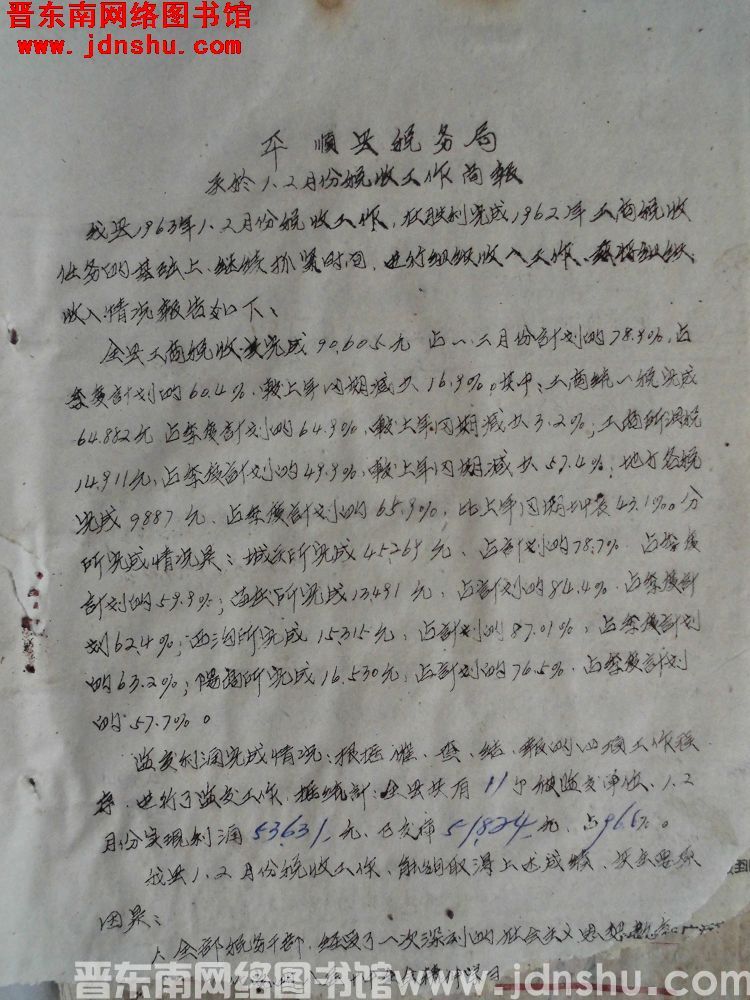 晋东南网络图书馆
www.jdnshu.com
平顺县税务局
关於1.2月份税收工作简报
我县1963年1.2月份税收工作，在胜利完成1962年工商税收
任务的基础上，继续抓紧时间，进行组织收入工作，兹将组织
收入情况报告如下：
全县工商税收共完成90.605元 占一、二月份计划的78.9%，占
季度计划的60.4%，较上年同期减少16.9%。其中：工商统一税完成
64.882元 占季度计划的64.9%，较上年同期减少3.2%；工商所得税
14.911元，占季度计划的49.9%，较上年同期减少57.4%；地方各税
完成9887元、占季度计划的65.9%，比上年同期43.1%。分
所完成情况是：城关所完成45.269元、占计划的78.7%、占季度
计划的59.9%；苗庄所完成13.491元，占计划的84.4%、占季度计
划62.4%；西沟所完成15.315元，占计划的87.01%，占季度计划
的63.2%；阳高所完成16.530元，占计划的76.5%、占季度计划
的57.7%。
监交利润完成情况：根据催、查、结、报的四项工作程
序，进行了监交工作，据统计：全县共有11个被监交单位、1.2
月份实现利润53631元、已交库51824元、占96.6%。
我县1.2月份税收工作、能够取得上述成绩、其主要原
因是：
1.全部税务干部，经受了一次深刻的社会主义思想教育
晋东南网络图书馆 www.jdnshu.com